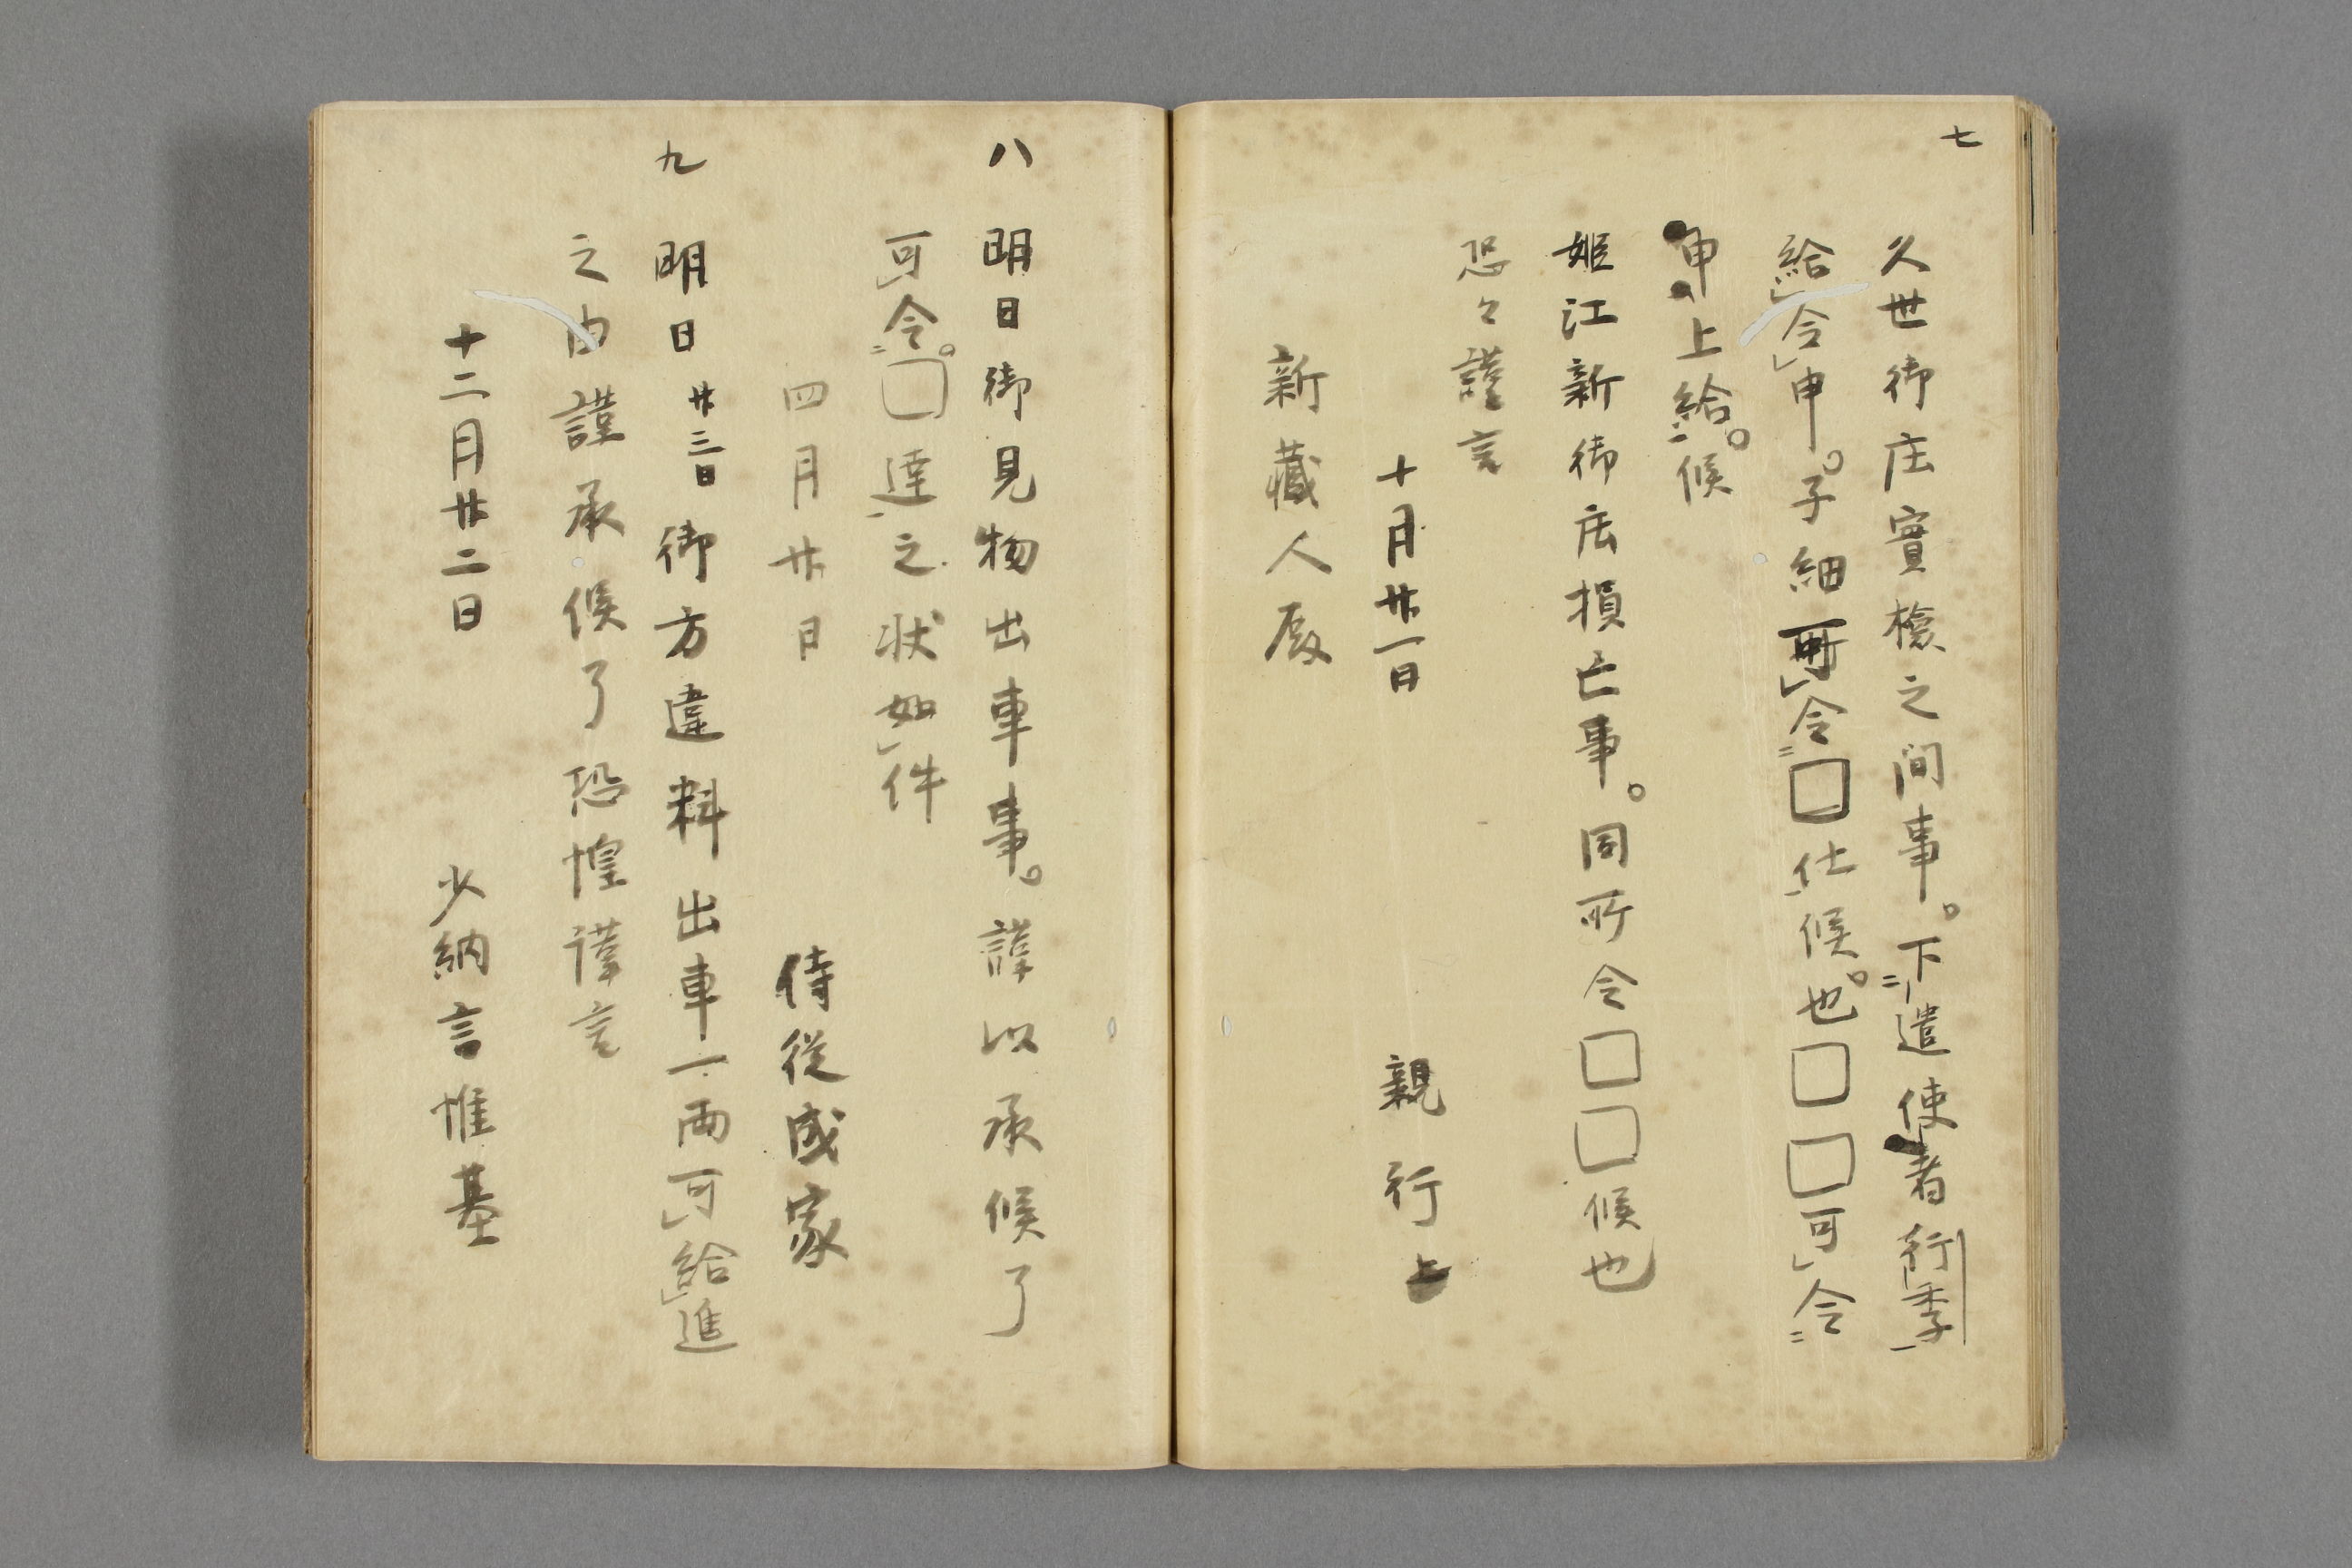 七
久世御庄實檢之间事。下遣使者行季
給令申。子細可令□仕候。也□□可令
申上給。候
姬江新御庄損亡事。同所令□□候也
恐々謹言
十月廿一日 親行上
新藏人殿
八
明日御見物出車事。謹以承候了
可令。□達之状如件
四月廿日 侍從成家
九
明日廿三日御方違料出車一両可給進
之由謹承候了恐惶謹言
十二月廿二日 少納言惟基